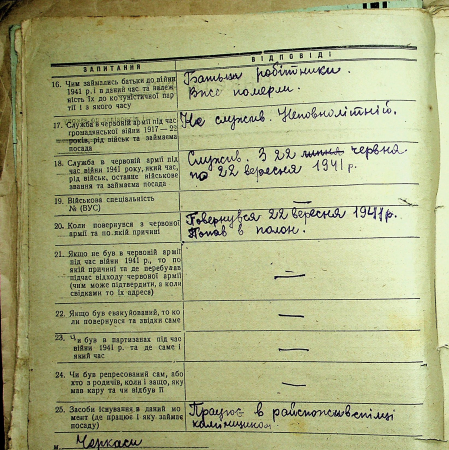 ЗАПИТАННЯ
ВІДПОВІДІ
16. Чим займались батьки до війни
1941 р. і в даний час та належ-
ність їх до комуністичної пар-
тії і з якого часу
Батьки робітники.
Вже померли.
17. Служба в червоній армії під час
громадянської війни 1917—22
років, рід військ та займаєма
посада
Не служив. Неповнолітній.
18. Служба в червоній армії під
час війни 1941 року, який час,
рід військ, останнє військове
звання та займаєма посада
Служив. З 22 червня
по 22 вересня 1941 р.
19. Військова спеціальність
№ (ВУС)
—
20. Коли повернувся з червоної
армії та по якій причині
Повернувся 22 вересня 1941 р.
Попав в полон.
21. Якщо не був в червоній армії
під час війни 1941 р., то по
якій причині та де перебував
підчас відходу червоної армії
(чим може підтвердити, а коли
свідками то їх адреса)
—
22. Якщо був евакуйований, то ко-
ли повернувся та звідки саме
—
23. Чи був в партизанах під час
війни 1941 р. та де саме і
який час
—
24. Чи був репресований сам, або
хто з родичів, коли і защо, яку
мав кару та чи відбув її
—
25. Засоби існування в даний мо-
мент (де працює і яку займає
посаду)
Працює в райспоживспілці
камінщиком
м. Черкаси